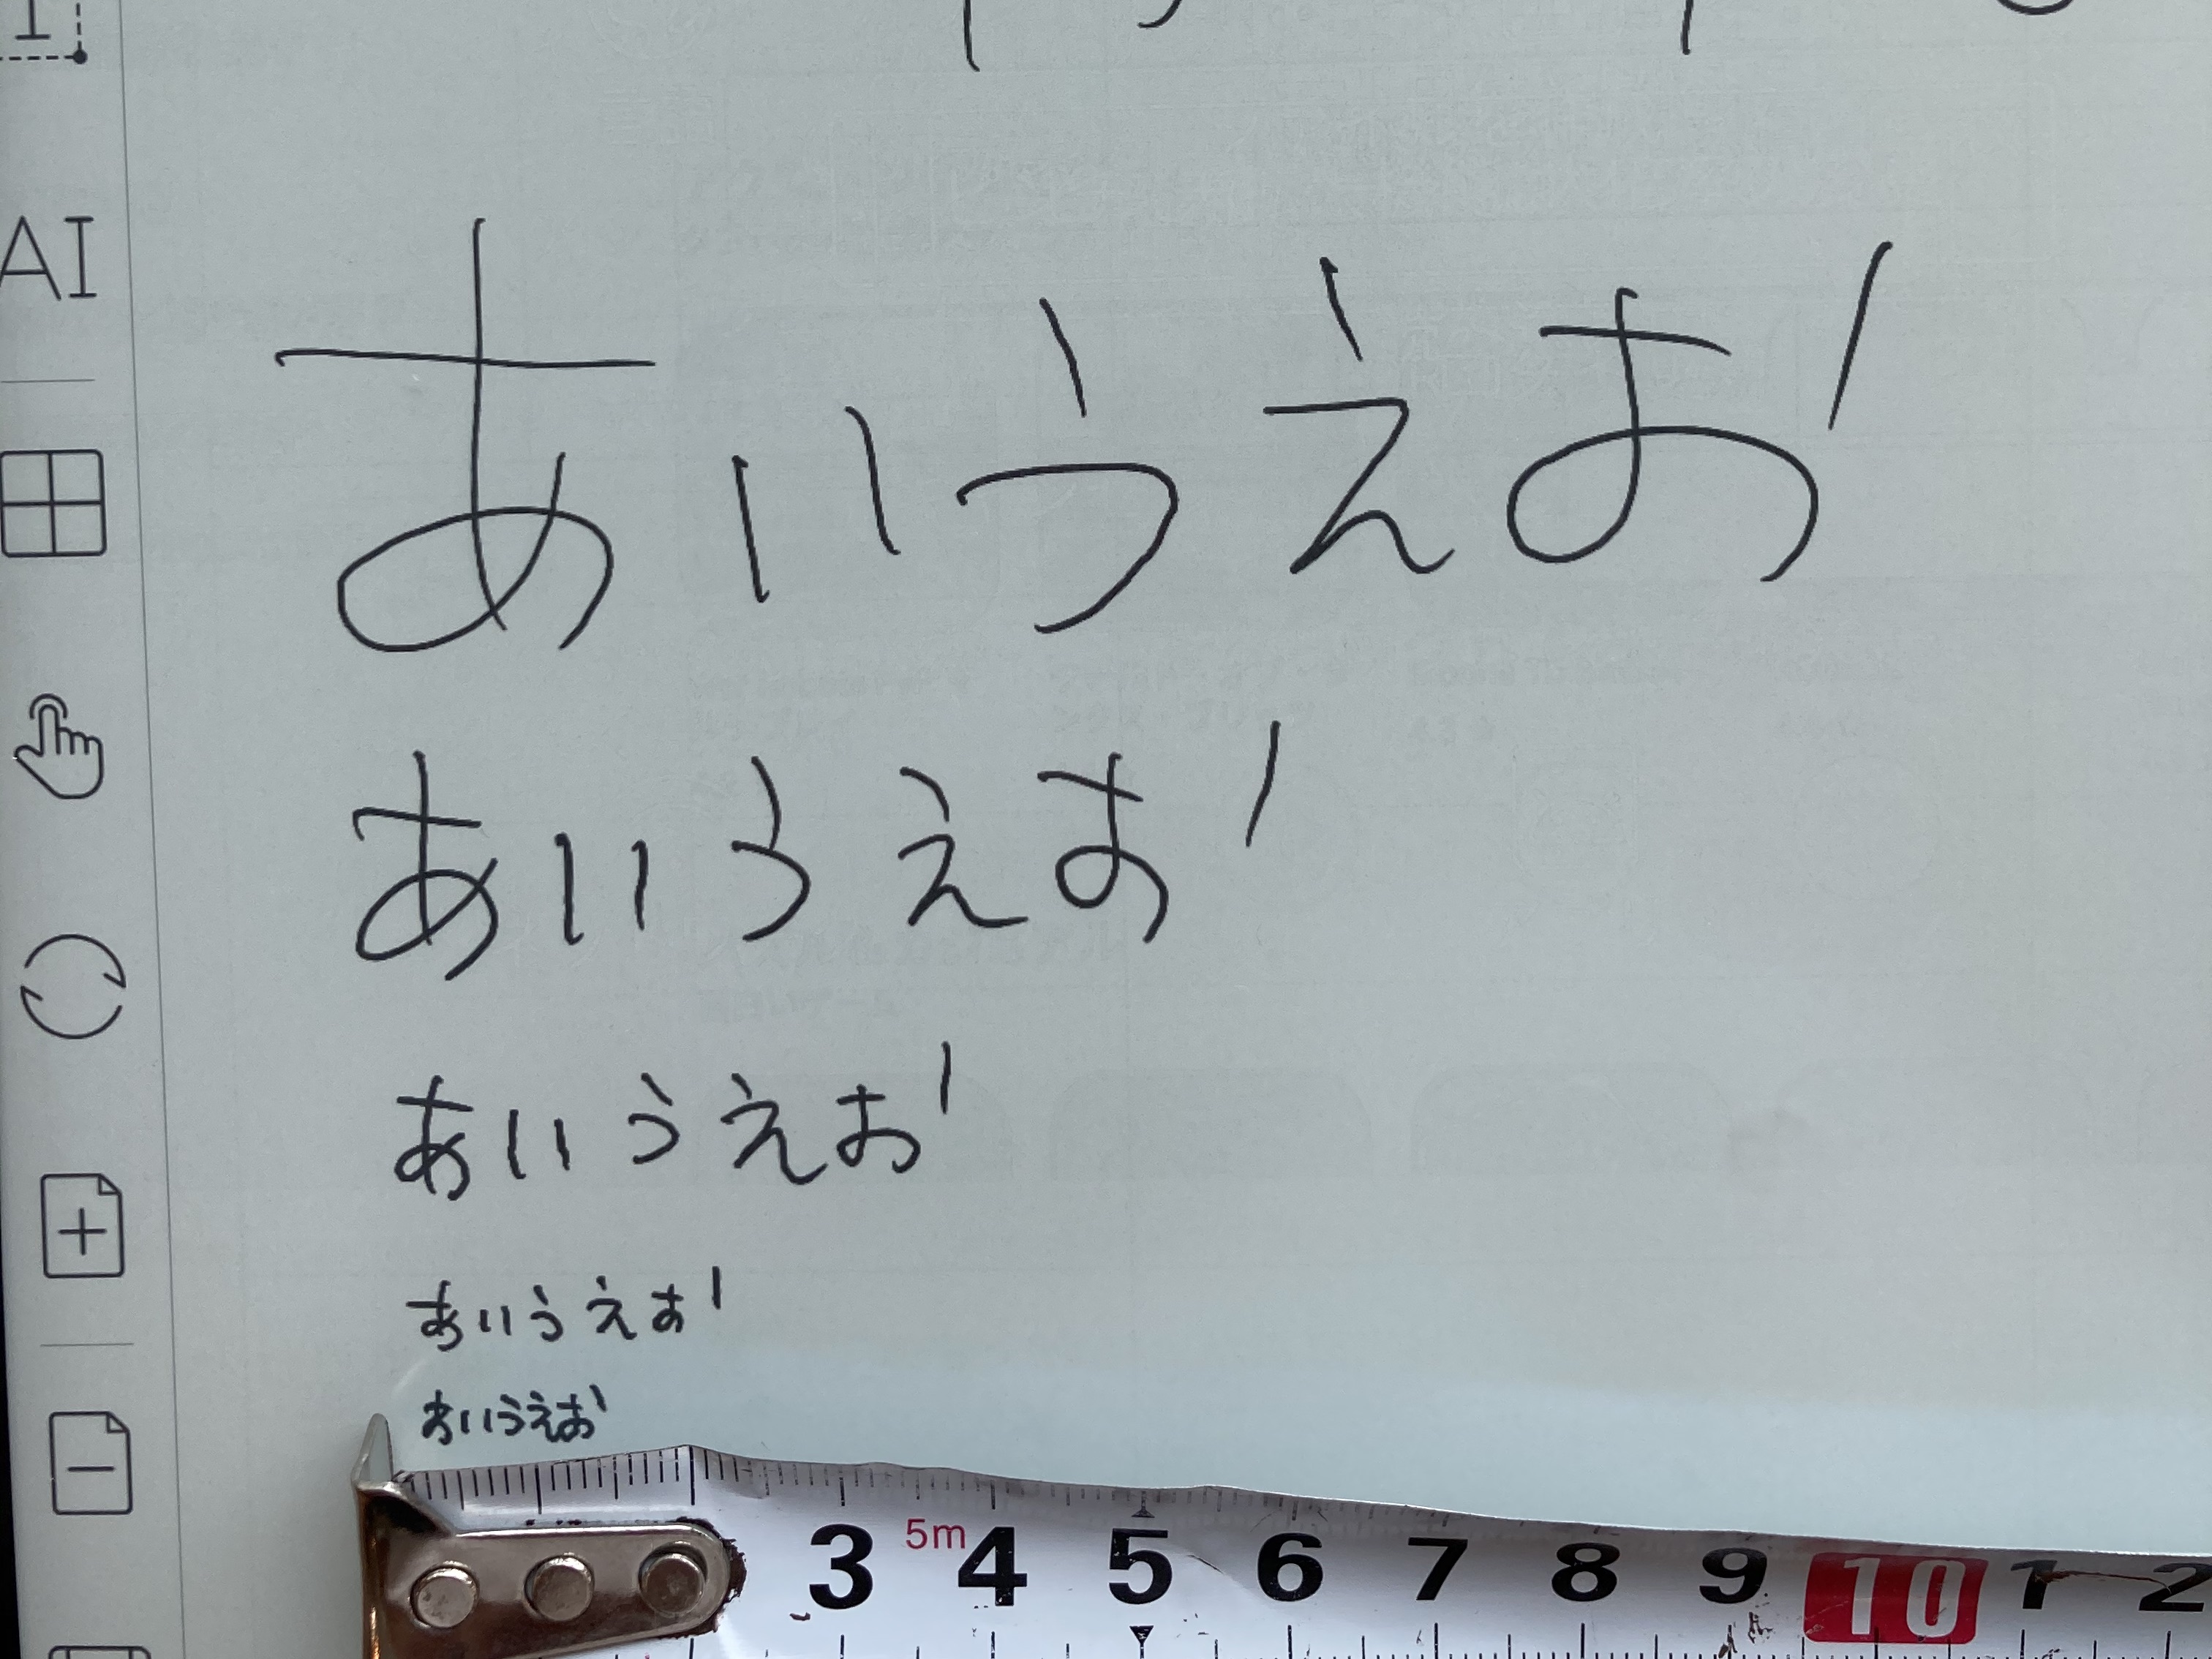 AI
あいうえお
あいうえお
あいうえお
あいうえお
あいうえお
5m
3 4 5 6 7 8 9 10 1 2